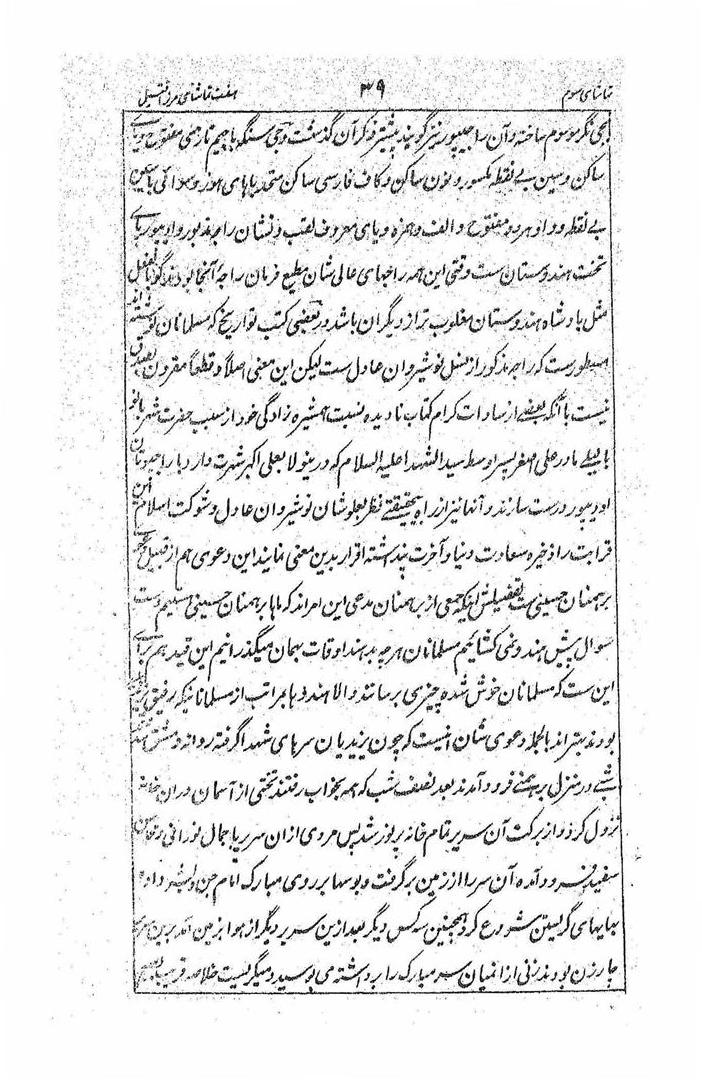 تماشای سوم ۳۹ هفت تماشای مرزا قتیل
نگر موسوم ساخته و آن را جیپور نیز گویند پیشتر ذکر آن گذشت و جی سنگه با جیم تازی مفتوح و یای
ساکن و سین بے نقطه مکسور و نون ساکن و کاف فارسی ساکن متحد با های هوز و سوائی با سین
بے نقطه و واو هر دو مفتوح و الف و همزه و یای معروف لقب و نشان راجه مذبور و اودیپور پای
تخت هندوستان ست وقتی این همه راجهای عالی شان مطیع فرمان راجهٔ آنجا بودند گو بالفعل
مثل بادشاه هندوستان مغلوب تر از دیگران باشد و در بعضی کتب تواریخ که مسلمانان نوشته اند
مسطور ست که راجه مذکور از نسل نوشیروان عادل ست لیکن این معنی اصلا و قطعا مقرون بصدق
نیست با آنکه بعضے از سادات کرام کتاب نادیده نسبت همشیره زادگی خود از سبب حضرت شهربانو
یا لیلے مادر علی اصغر پسر اوسط سید الشهدا علیه السلام که درینولا بعلی اکبر شهرت دارد با راجهوتان
اودیپور درست سازند و آنها نیز از راه بیحقیقتے نظر بعلو شان نوشیروان عادل و شوکت اسلام این
قرابت را ذخیره سعادت دنیا و آخرت پنداشته اقرار بدین معنی نمایند این دعوی هم از قبیل
برهمنان حسینی ست تفصیلش اینکه جمعی از برهمنان مدعی این امر اند که ما برهمنان حسینی هستیم دست
سوال پیش هندو نمی کشائیم مسلمانان هر چه بدهند اوقات بهمان میگذرانیم این قید هم برای
این ست که مسلمانان خوش شده چیزی برسانند والا هندوها بمراتب از مسلمانانیکه رفیق یزید
بودند بهتر اند بالجمله دعوی شان اینست که چون یزیدیان سرهای شهدا گرفته روانهٔ دمشق شدند
شبے در منزل برهمنے فرود آمدند بعد نصف شب که همه بخواب رفتند تختی از آسمان دران خانه
نزول کرد و از برکت آن سریر تمام خانه پر نور شد پس مردی ازان سریر با جمال نورانی و محاسن
سفید فرود آمده آن سر را از زمین برگرفت و بوسها بر روی مبارک امام جن و بشر داده
بهایهای گریستن شروع کرد و همچنین سه کس دیگر بعد ازین سریر دیگر از هوا بزمین آمد برین سریر
چار زن بودند زنی از انمیان سر مبارک را برداشته می بوسید و میگریست خلاصه قریب بصبح